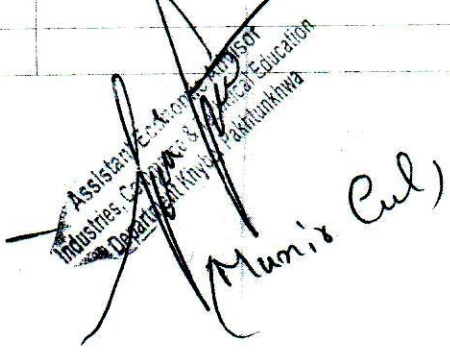 Assistant Economic Advisor
Industries, Commerce & Technical Education
Department Khyber Pakhtunkhwa
(Munir Gul)